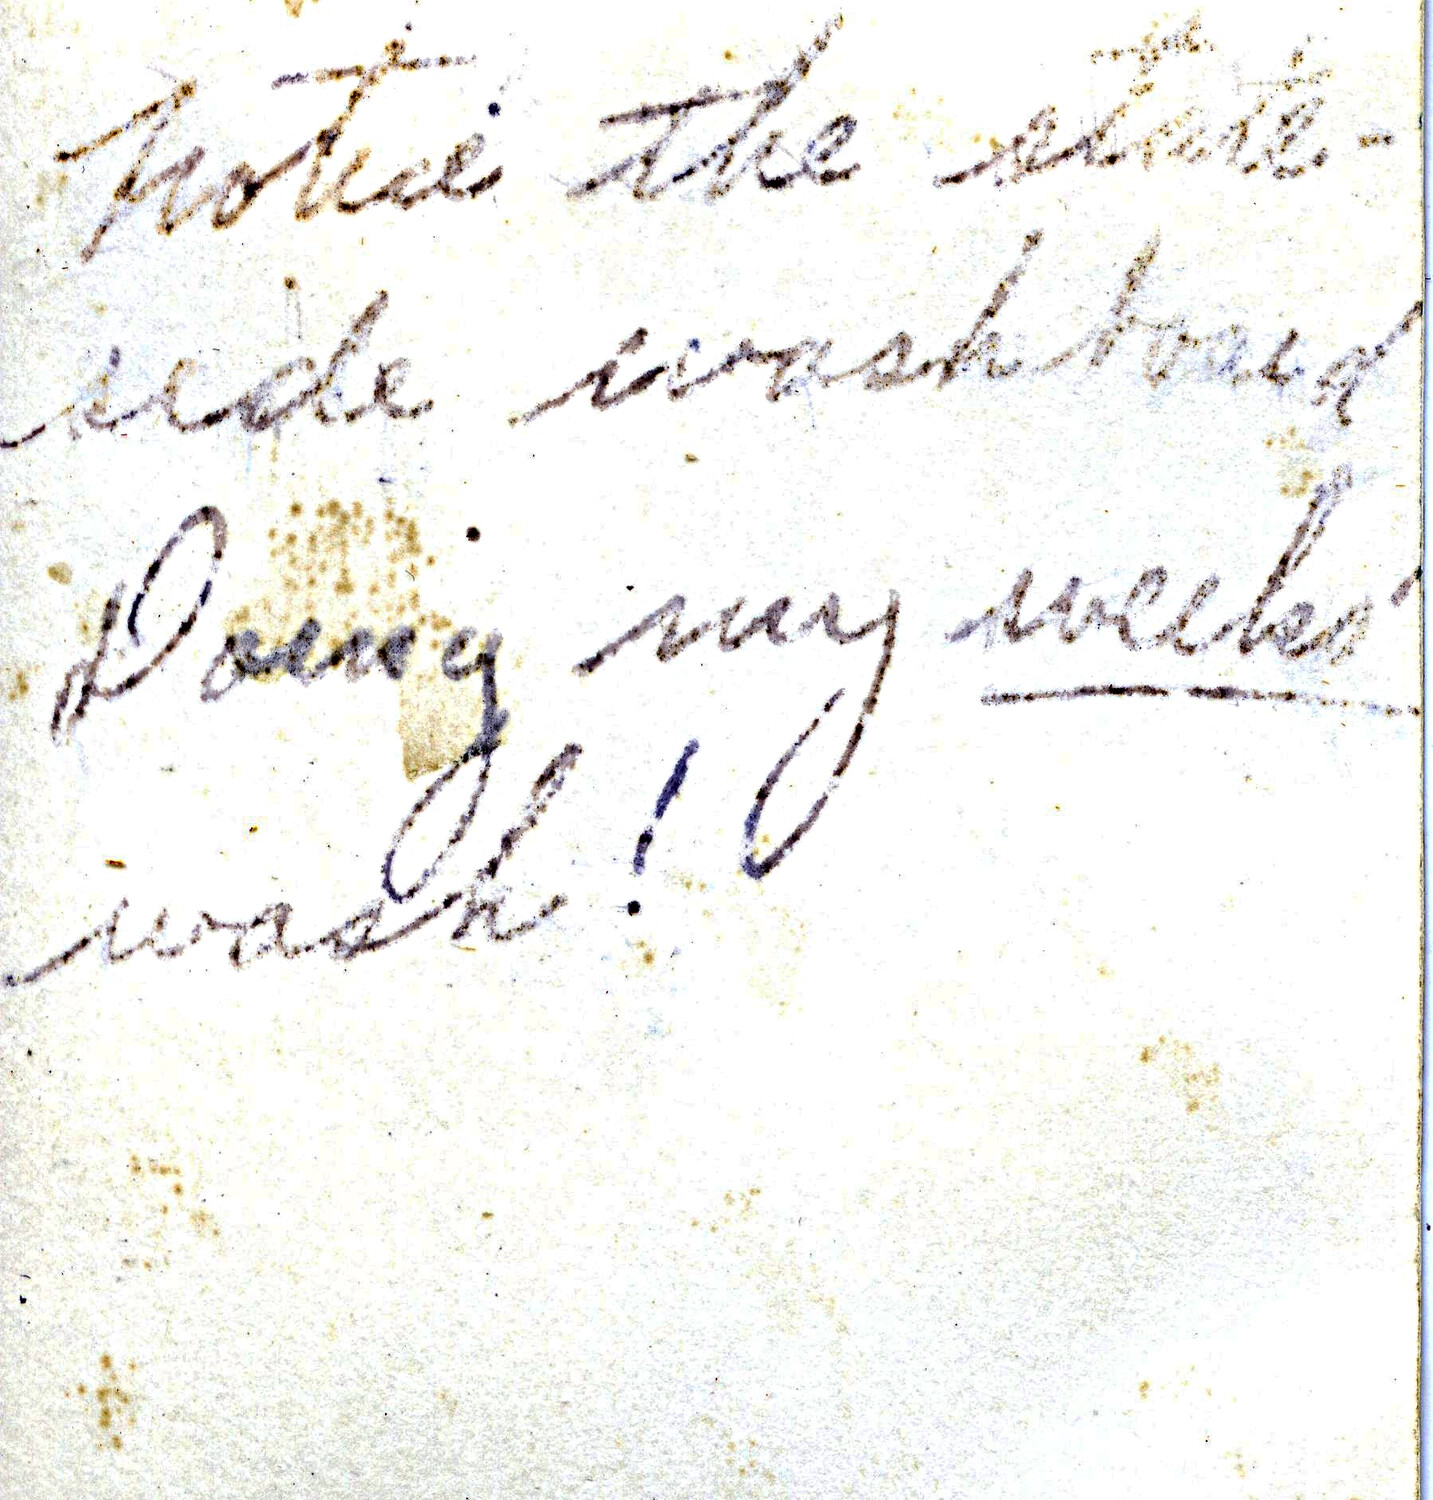 Notice the state-
side washboard
Doing my weeks'
wash!